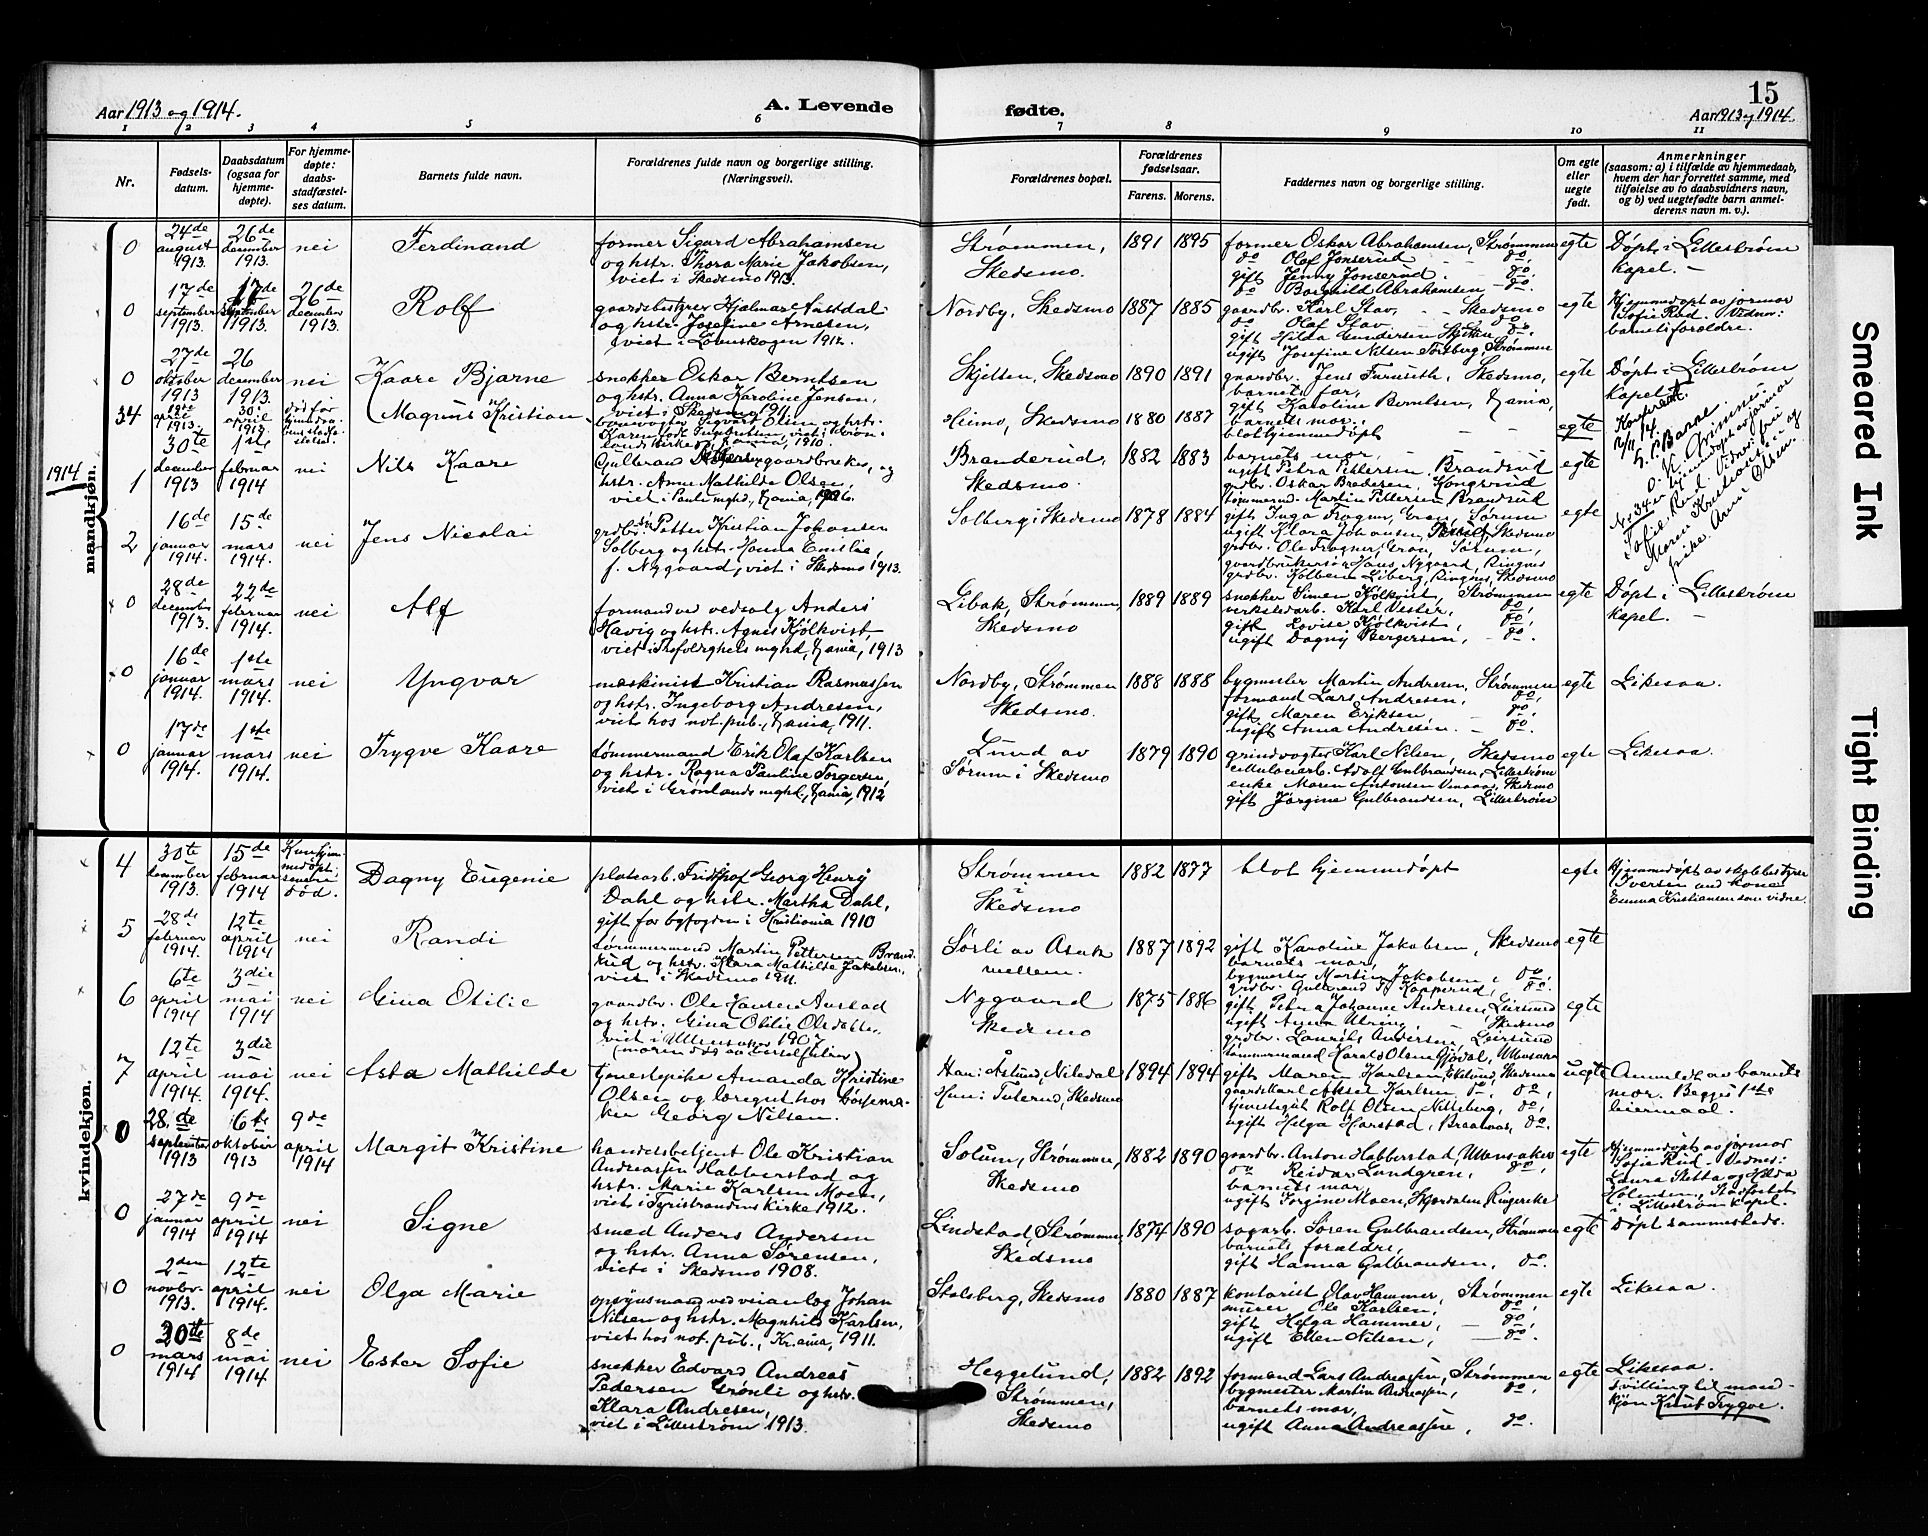 Aar 1913 og 1914.
A. Levende
fødte.
15
Aar 1913 og 1914.
1 2 3 4 5 6 7 8 9 10 11
Nr.
Fødsels-
datum.
Daabsdatum
(ogsaa for
hjemme-
døpte).
For hjemme-
døpte:
daabs-
stadfæstel-
ses datum.
Barnets fulde navn.
Forældrenes fulde navn og borgerlige stilling.
(Næringsvei).
Forældrenes bopæl.
Forældrenes
fødselsaar.
Farens. Morens.
Faddernes navn og borgerlige stilling.
Om egte
eller
uegte
født.
Anmerkninger
(saasom: a) i tilfælde av hjemmedaab,
hvem der har forrettet samme, med
tilføielse av to daabsvidners navn,
og b) ved uegtefødte barn anmel-
derens navn m. v.).
mandkjøn.
0
24de
august
1913.
26de
december
1913.
nei
Ferdinand
former Sigurd Abrahamsen
og hstr. Thora Marie Jakobsen,
viet i Skedsmo 1913.
Strømmen,
Skedsmo.
1891 1895
former Oskar Abrahamsen, Strømmen
do Olaf Jonserud - do,
gift Jenny Jonserud. - do.
do Borghild Abrahamsen - do.
egte
Døpt i Lillestrøm
kapel. -
0
17de
september
1913.
17de
september
1913.
26de
december
1913.
Rolf
gaardsbestyrer Hjalmar Austdal
og hstr. Josefine Arnesen,
viet i Lørenskogen 1912.
Nordby, Skedsmo
1887 1885
gaardbr. Karl Stav, - Skedsmo
do Olaf Stav do
gift Hilda Gundersen
ugift Josefine Nilsen Torsberg, Strømmen
egte
Hjemmedøpt av jormor
Sofie Rud. Vidner:
barnets forældre.
0
27de
oktober
1913
26
december
1913.
nei
Kaare Bjarne
snekker Oskar Berntsen
og hstr. Anna Karoline Jensen,
viet i Skedsmo 1911.
Skjetten, Skedsmo
1890 1891
gaardbr. Jens Furuseth, Skedsmo,
barnets far,
gift Karoline Berntsen, Kania,
barnets mor.
egte
Døpt i Lillestrøm
kapel.
34
april
1913.
30.
april
1913.
død før
Magnus Kristian
banevogter Sigvart Olsen og hstr.
1910.
Heimo, Skedsmo
1880 1887
blot hjemmedøpt
egte
Konferert.
2/11 14
1914
1
30te
december
1913
1ste
februar
1914
nei
Nils Kaare
Gulbrand gaardbruker, og
hstr. Anne Mathilde Olsen,
viet i Pauls mghd., Kania, 1906.
Branderud,
Skedsmo.
1882 1883
barnets mor,
ugift Petra Pettersen, Brandrud
grdbr. Oskar Bredesen, Kongsrud
tømmermd. Martin Pettersen Brandrud
egte
Nr 34 er hjemmedøpt av jormor
Sofie Rud. Vidner: fru
Maren Kristiansen og
frøken Anne Olsen.
2
16de
januar
1914.
15de
mars
1914.
nei
Jens Nicolai
grdbr. Petter Kristian Johansen
Solberg og hstr. Hanna Emilie,
f. Nygaard, viet i Skedsmo 1913.
Solberg i Skedsmo
1878 1884
gift Inga Frogner, Sørum
ugift Klara Johansen, Skedsmo
grdbr. Ole Frogner, Sørum,
gaardbrukersøn Hans Nygaard, Ringnes
grdbr. Kolbein Liberg, Ringnes, Skedsmo
egte
0
28de
december
1913.
22de
februar
1914.
nei
Alf
formand ved vedsalg Anders
Havig og hstr. Agnes Kjølkvist,
viet i mghd, Kania, 1913
Libak, Strømmen,
Skedsmo
1889 1889
snekker Simen Kjølkvist, Strømmen
verkstedarb. Karl Vester, do,
gift Lovise Kjølkvist, do,
ugift Dagny Bergersen, - do.
egte
Døpt i Lillestrøm
kapel. -
0
16de
januar
1914.
1ste
mars
1914.
nei
Yngvar
maskinist Kristian Rasmussen
og hstr. Ingeborg Andresen,
viet hos not. pub., Kania, 1911.
Nordby, Strømmen
Skedsmo.
1888 1888
bygmester Martin Andresen, Strømmen
formand Lars Andresen, do,
gift Maren Eriksen - do,
ugift Anna Andresen. - do.
egte
Likesaa.
0
17de
januar
1914.
1ste
mars
1914.
nei
Trygve Kaare
tømmermand Erik Olaf Karlsen
og hstr. Ragna Pauline Torgersen,
viet i Grønlands mghd., Kania, 1912
Lund av
Sørum i Skedsmo
1879 1890
grindvogter Karl Nilsen, Skedsmo
cellulosearb. Adolf Gulbrandsen, Lillestrøm
enke Maren Antonsen Skedsmo
gift Jørgine Gulbrandsen, Lillestrøm
egte
Likesaa.
kvindekjøn.
4
30te
december
1913.
15de
februar
1914
Kun hjem-
medøpt,
senere
død.
Dagny Eugenie
platearb. Fridthjof Georg Henry
Dahl og hstr. Martha Dahl,
gift for byfogden i Kristiania 1910
Strømmen
i
Skedsmo
1882 1877
blot hjemmedøpt
egte
Hjemmedøpt av skolebestyrer
Iversen med konen
Emma Kristiansen som vidne.
5
28de
februar
1914.
12te
april
1914
nei
Randi
tømmermand Martin Pettersen Brand-
rud og hstr. Klara Mathilde Jakobsen,
viet i Skedsmo 1911.
Sørli av Asak
mellem.
1887 1892
gift Karoline Jakobsen, Skedsmo
barnets mor,
bygmester Martin Jakobsen, do.
grdbr. Gulbrand Kopperud, do.
egte
6
6te
april
1914
3die
mai
1914
nei
Gina Otilie
gaardbr. Ole Hansen Aurstad
og hstr. Gina Otilie Olsdatter,
viet i Ullensaker 1907
(moren død av barselfeber)
Nygaard
Skedsmo
1875 1886
gift Petra Johanne Andersen, Leirsund
ugift Anna - Skedsmo
grdbr. Laurits Andersen, Leirsund
tømmermand Harald Olsen Gjødal, Ullensaker
egte
7
12te
april
1914.
3die
mai
1914.
nei
Asta Mathilde
tjenestepike Amanda Kristine
Olsen og læregut hos børsema-
ker Georg Nilsen.
Han: Åslund, Nitedal
Hun: Tuterud, Skedsmo
1894 1894
gift Maren Karlsen, Eklund, Skedsmo
gaardskarl Aksel Karlsen, do, do,
tjenestegut Rolf Olsen Nitteberg, do,
ugift Helga Harstad, Braanaas, do.
uegte
Anmeldt av barnets
mor. Begges 1ste
leiermaal.
0
28de
september
1913
6te
oktober
1913
9de
april
1914
Margit Kristine
handelsbetjent Ole Kristian
Andreassen Habberstad og
hstr. Marie Karlsen Moen,
viet i Tyristrandens kirke 1912.
Solum, Strømmen,
Skedsmo
1882 1890
gaardbr. Anton Habberstad, Ullensaker
do Reidar Lundgren, do,
barnets mor,
ugift Jørgine Moen, Skjærdalen Ringerike
egte
Hjemmedøpt av jormor
Sofie Rud - Vidner:
Laura Stetta og Hilda
Holensen, Stadfæstet
i Lillestrøm kapel.
0
27de
januar
1914
9de
april
1914
nei
Signe
smed Anders Andersen
og hstr. Anna Sørensen,
viet i Skedsmo 1908.
Lindstad, Strømmen,
Skedsmo
1874 1890
sagarb. Søren Gulbrandsen, Strømmen
barnets forældre,
gift Hanna Gulbrandsen, do.
egte
Døpt sammesteds.
0
2den
novbr.
1913.
12te
april
1914.
nei
Olga Marie
opsynsmand ved veianlæg Johan
Nilsen og hstr. Magnhild Karlsen,
viet hos not. pub., Kr.ania, 1911.
Stalsberg, Skedsmo
1880 1887
kontorist Olav Hammer, Strømmen
murer Ole Karlsen, do,
gift Helga Hammer, - do,
ugift Ellen Nilsen, - do.
egte
Likesaa.
0
30te
mars
1914
8de
mai
1914
nei
Ester Sofie
snekker Edvard Andreas
Pedersen Grønli og hstr.
Klara Andresen,
viet i Lillestrøm 1913.
Heggelund,
Strømmen,
Skedsmo
1882 1892
formand Lars Andreassen, Strømmen
bygmester Martin Andreassen, do,
barnets mor,
ugift Anna Andreassen, do.
egte
Likesaa.
Tvilling til mand-
kjøn Knut Trygve.
Smeared Ink
Tight Binding